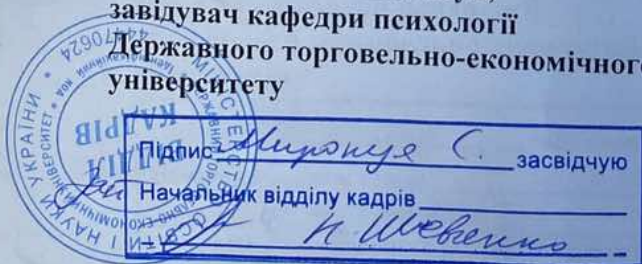 завідувач кафедри психології
Державного торговельно-економічного
університету
Підпис Миронця С. засвідчую
Начальник відділу кадрів
Н. Шевченко
ВІДДІЛ
КАДРІВ
МІНІСТЕРСТВО ОСВІТИ І НАУКИ УКРАЇНИ
44470624